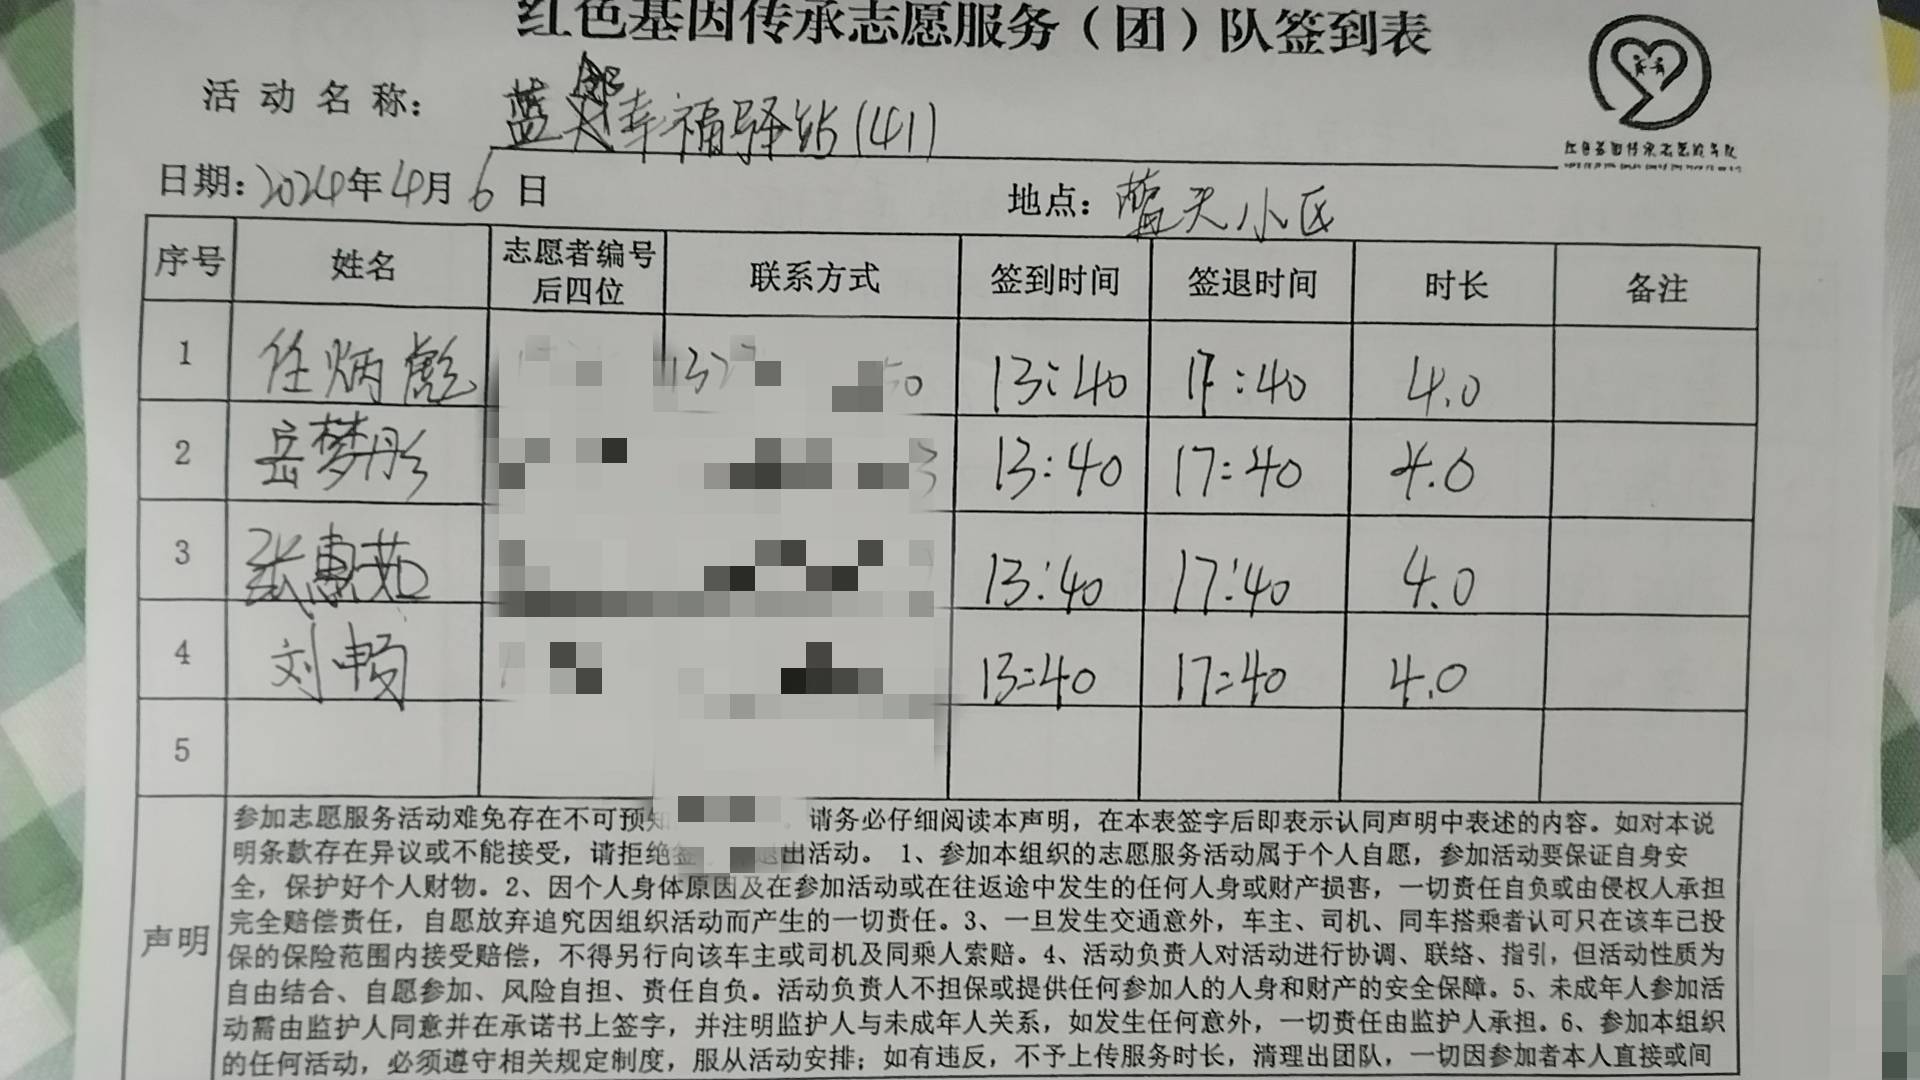 红色基因传承志愿服务（团）队签到表
活动名称：蓝邻幸福驿站(41)
日期：2024年4月6日 地点：蓝天小区
序号 姓名 志愿者编号后四位 联系方式 签到时间 签退时间 时长 备注
1 任炳彪 13:40 17:40 4.0
2 岳梦彤 13:40 17:40 4.0
3 张惠茹 13:40 17:40 4.0
4 刘畅 13:40 17:40 4.0
5
声明
参加志愿服务活动难免存在不可预知 。请务必仔细阅读本声明，在本表签字后即表示认同声明中表述的内容。如对本说
明条款存在异议或不能接受，请拒绝签 退出活动。 1、参加本组织的志愿服务活动属于个人自愿，参加活动要保证自身安
全，保护好个人财物。2、因个人身体原因及在参加活动或在往返途中发生的任何人身或财产损害，一切责任自负或由侵权人承担
完全赔偿责任，自愿放弃追究因组织活动而产生的一切责任。3、一旦发生交通意外，车主、司机、同车搭乘者认可只在该车已投
保的保险范围内接受赔偿，不得另行向该车主或司机及同乘人索赔。4、活动负责人对活动进行协调、联络、指引，但活动性质为
自由结合、自愿参加、风险自担、责任自负。活动负责人不担保或提供任何参加人的人身和财产的安全保障。5、未成年人参加活
动需由监护人同意并在承诺书上签字，并注明监护人与未成年人关系，如发生任何意外，一切责任由监护人承担。6、参加本组织
的任何活动，必须遵守相关规定制度，服从活动安排；如有违反，不予上传服务时长，清理出团队，一切因参加者本人直接或间